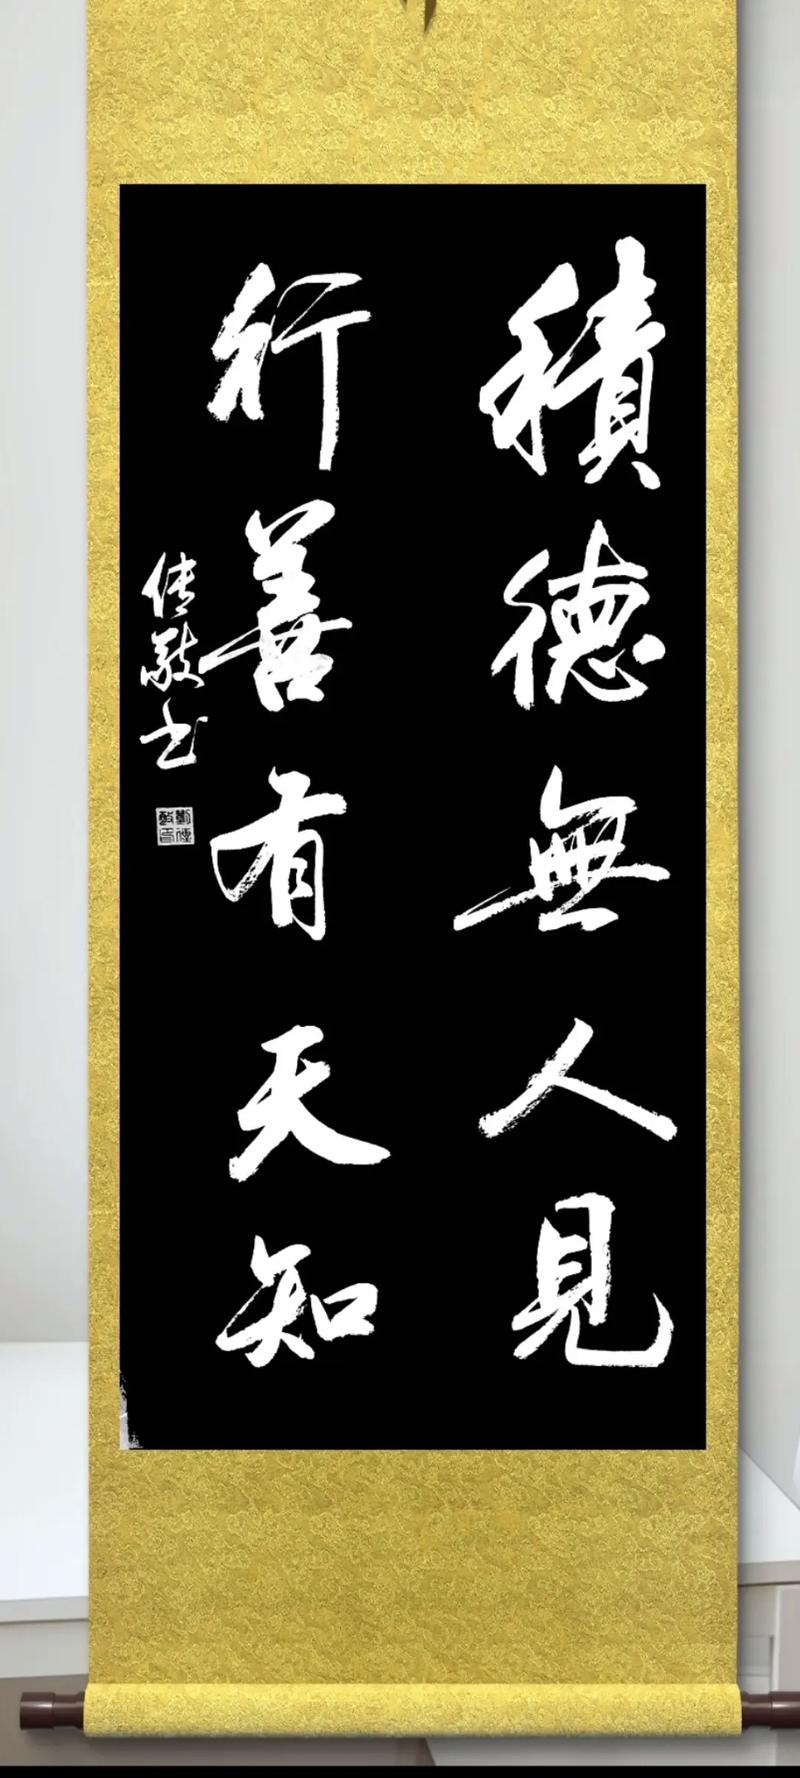 積德無人見
行善有天知
传敬书